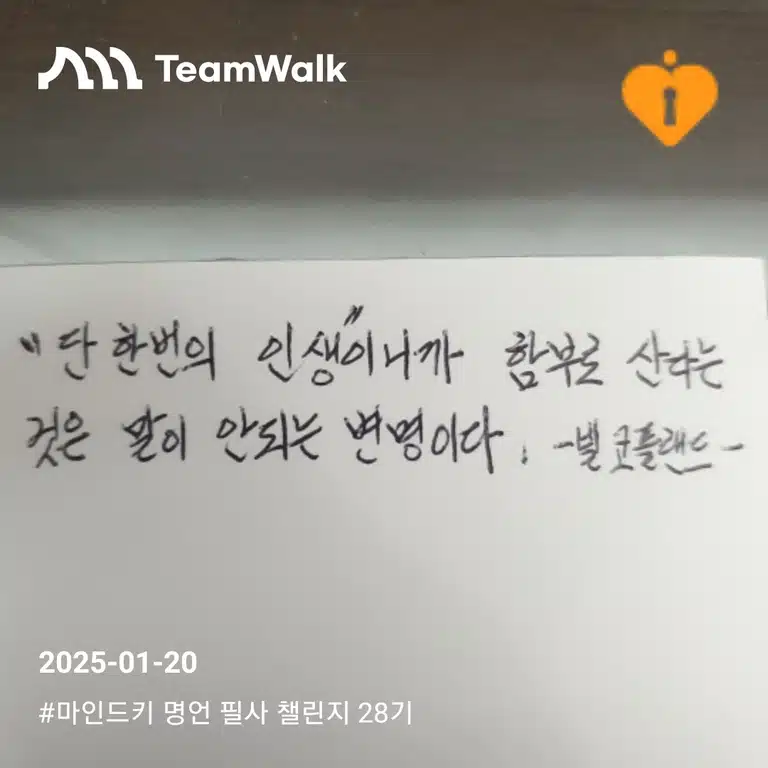 TeamWalk
"단 한번의 인생"이니까 함부로 산다는
것은 말이 안되는 변명이다. -빌 코플랜드-
2025-01-20
#마인드키 명언 필사 챌린지 28기